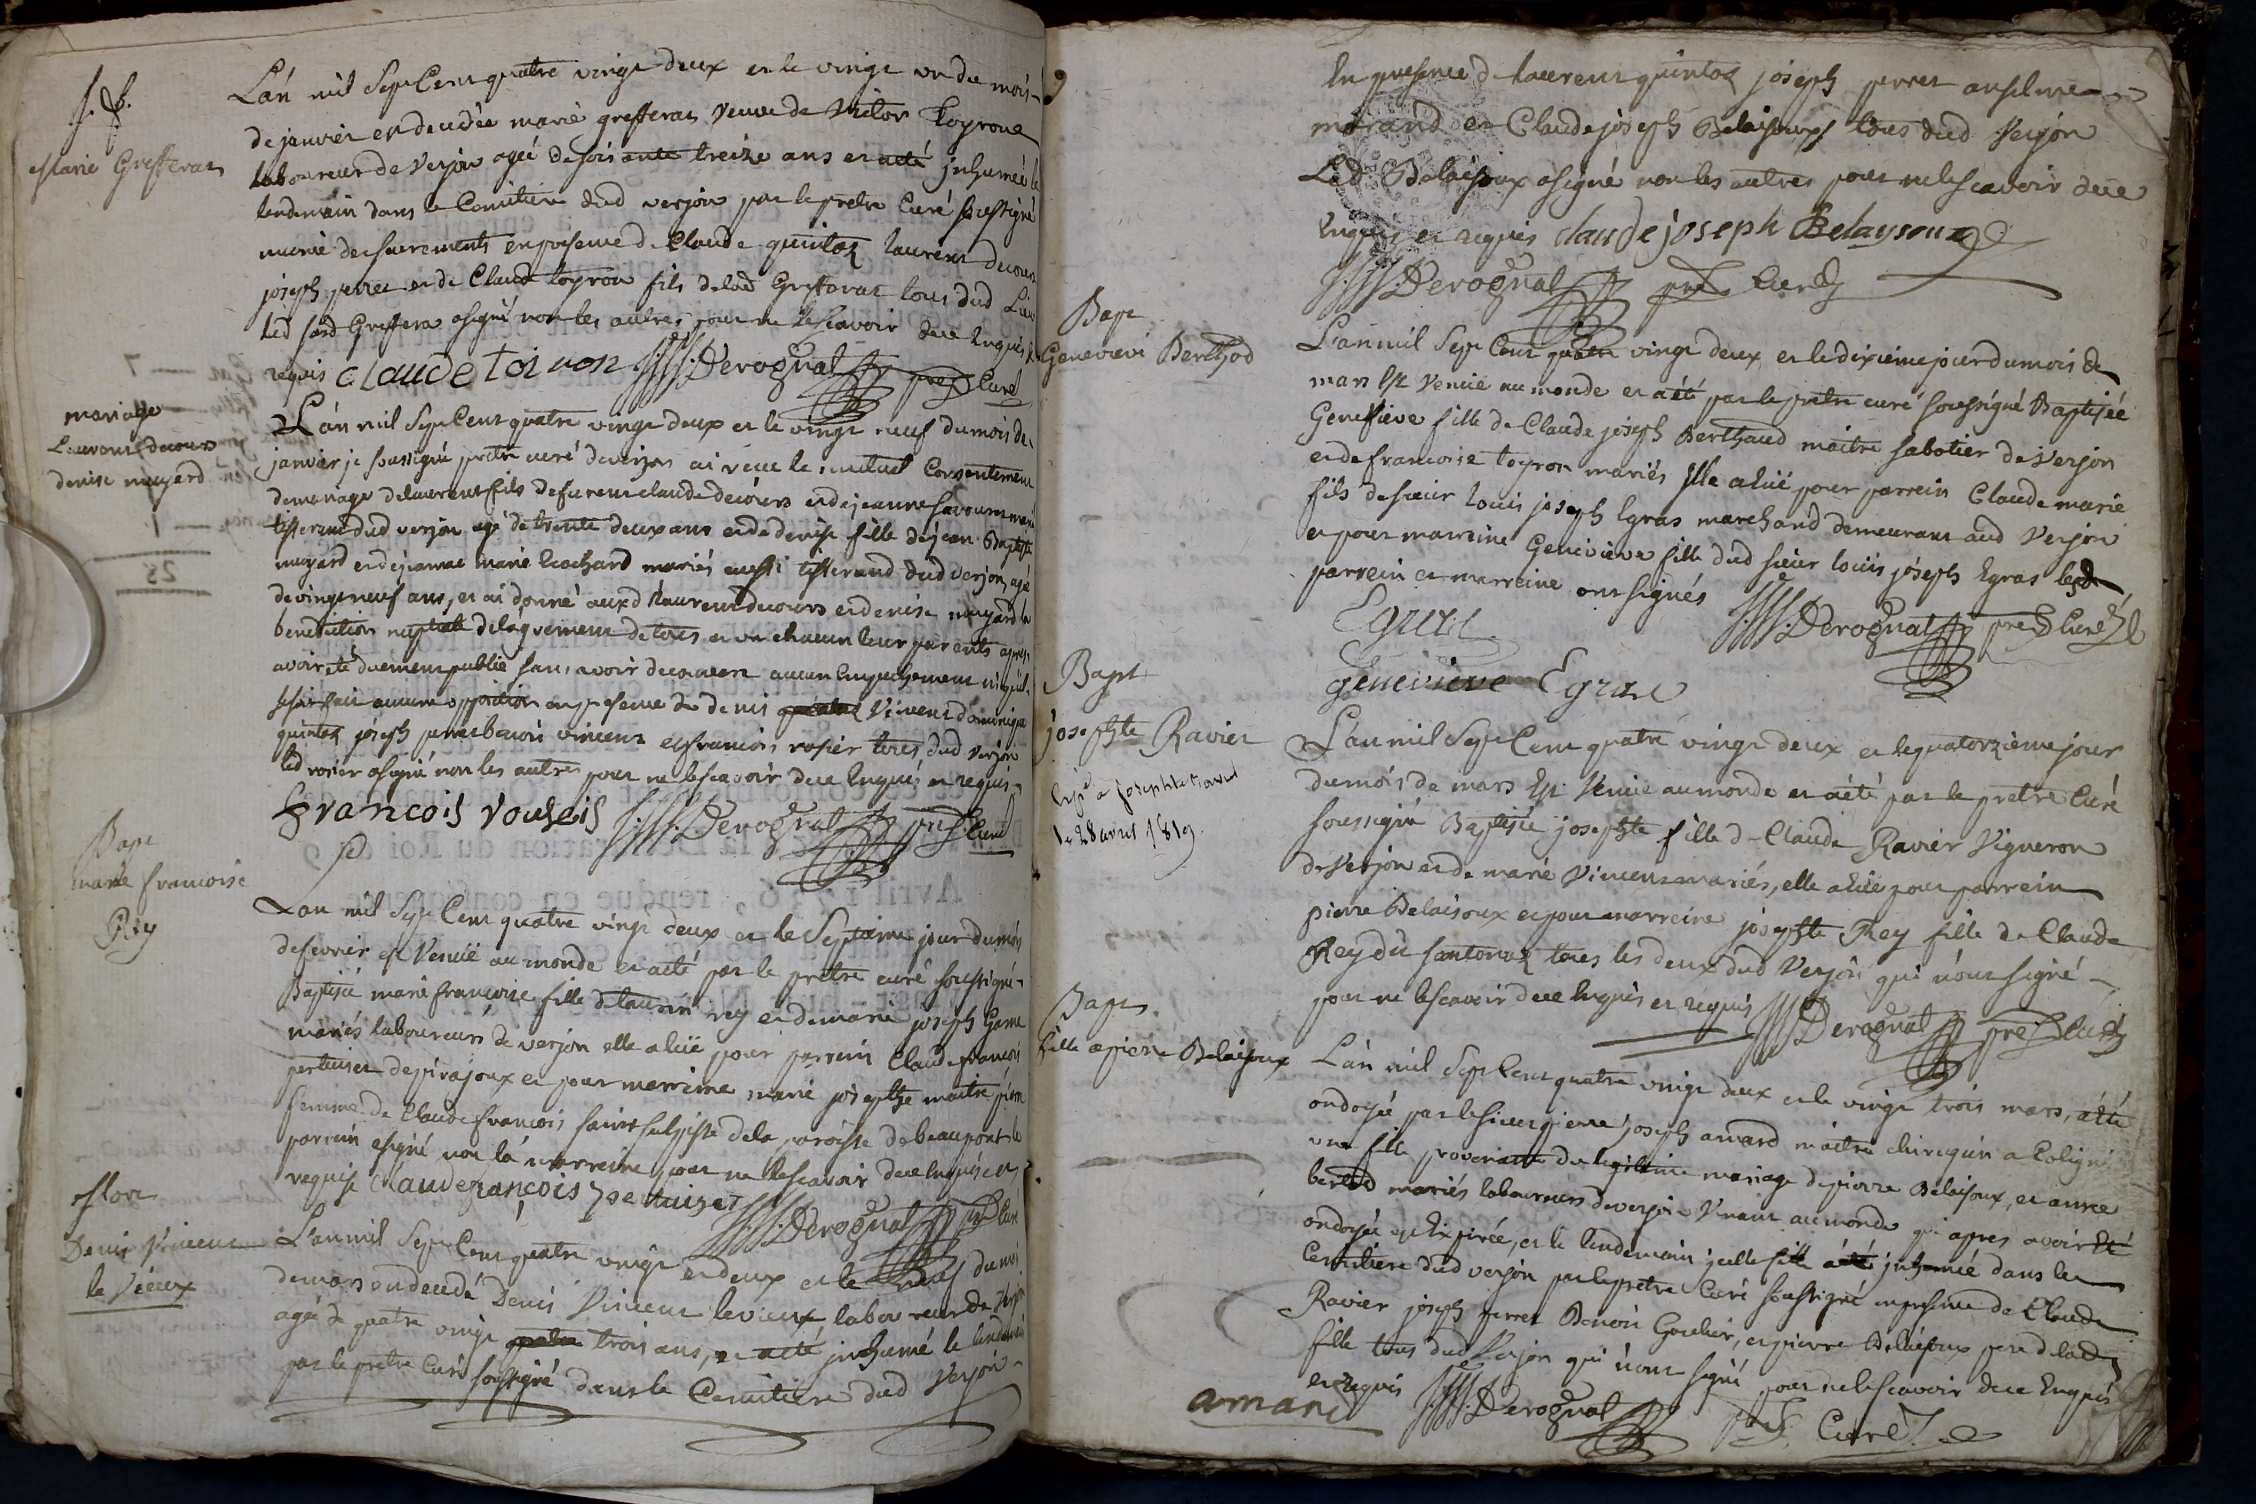 S. p.
Marie Grefferat
L'an mil sept Cent quatre vingt deux et le vingt un du mois
de janvier est decedée marie grefferat veuve de victor Toyron
laboureur de Verjon ageé de soixante treize ans et a eté jnhumeé le
lendemain dans le Cemitiere dud verjon par le pretre Curé soussigné
munie des sacrements en presence de Claude quintoz laurent decours
joseph perret et de Claude toyron fils de lad Grefferat tous dud Lieu
led Grefferat a signé non les autres pour ne le scavoir de ce Enquis
requis Claude toi ron Derognat pretre Curé
mariage
Laurent decours
denise mugard
L'an mil sept Cent quatre vingt deux et le vingt neuf du mois de
janvier je soussigné pretre curé de verjon ai recu le mutuel Consentement
de mariage de laurent fils de fut claude decours et de jeanne savourin
tisserand dud verjon agé de trente deux ans et de denise fille de jean Baptiste
mugard et de jeanne marie Cochard mariés aussi tisserand dud verjon, agé
de vingt neuf ans, et ai donné auxd Laurent decours et denise mugard la
benediction nuptiale de l'agrement de tous et un chacun leur parents apres
avoir eté duement publié sans avoir decouvert aucun Empechement ni qu'il
se soit fait aucune opposition en presence de denis Vincent dominique
quintoz joseph perret benoit vincent et francois rosier tous dud Verjon
led rosier a signé non les autres pour ne le scavoir de ce Enquis et requis
francois rouseis Derognat pre Curé
Bapt
marie francoise
Rey
L'an mil sept Cent quatre vingt deux et le septieme jour du mois
de fevrier est Venuë au monde et a eté par le pretre curé soussigné
Baptisée marie francoise fille de laurin rey et de marie joseph Game
mariés laboureurs de verjon elle a luë pour parrein Claude francois
pertuiset de pirajoux et pour marreine marie josephte maitre pierre
femme de Claude francois saint sulpisse de la paroisse de beaupont le
parrein a signé non la marreine pour ne le scavoir de ce Enquise et
requise Claude francois pertuiset Derognat pre Curé
Mort
Denis Vincent
le Vieux
L'an mil sept Cent quatre vingt et deux et le du mois
de mars est decedé Denis Vincent le vieux laboureur de Verjon
agé de quatre vingt trois ans, et a eté jnhumé le lendemain
par le pretre Curé soussigné dans le Cemitiere dud Verjon
En presence de laurent quintoz joseph perret anselme
morand et Claude joseph Belaisoux tous dud Verjon
Led Belaisoux a signé non les autres pour ne le scavoir de ce
Enquis et requis claude joseph Belaysoux
Derognat pre Curé
Bapt
Genevieve Berthod
L'an mil sept Cent quatre vingt deux et le dixieme jour du mois de
mars Est Venuë au monde et a eté par le pretre curé soussigné Baptisée
Genevieve fille de Claude joseph Berthaud maitre sabotier de Verjon
et de francoise toyron mariés Elle a luë pour parrein Claude marie
fils de sieur louis joseph Egras marchand demeurant aud Verjon
et pour marreine Genevieve fille dud sieur louis joseph Egras lesd
parrein et marreine ont signés
Egras Derognat pre Curé
genevieve Egras
Bapt
josephte Ravier
Expé a Josephte Ravier
le 28 avril 1819.
L'an mil sept Cent quatre vingt deux et le quatorzieme jour
du mois de mars Est Venuë au monde et a eté par le pretre Curé
soussigné Baptisée josephte fille de Claude Ravier Vigneron
de Verjon et de marie Vincent mariés, elle a luë pour parrein
pierre Belaisoux et pour marreine josephte Rey fille de Claude
Rey du santonaz tous les deux dud Verjon qui n'ont signé
pour ne le scavoir de ce Enquis et requis Derognat pre Curé
Bapt
fille a pierre Belaisoux
L'an mil sept Cent quatre vingt deux et le vingt trois mars, a eté
ondoyée par le sieur pierre joseph amard maitre chirurgien a Coligni
une fille provenante du legitime mariage de pierre Belaisoux, et anne
berthod mariés laboureurs de verjon Venant au monde qui apres avoir Eté
ondoyée est Expirée, et le lendemain jcelle fille a eté jnhumée dans le
Cemitiere dud verjon par le pretre Curé soussigné en presence de Claude
Ravier joseph perret Benoit Goulier, et pierre Belaisoux pere de lad
fille tous dud Verjon qui n'ont signé pour ne le scavoir de ce Enquis
et Requis Derognat pre Curé
amard